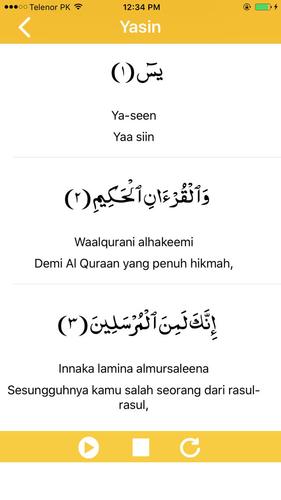 Telenor PK 12:34 PM
Yasin
يسٓ (١)
Ya-seen
Yaa siin
وَٱلْقُرْءَانِ ٱلْحَكِيمِ (٢)
Waalqurani alhakeemi
Demi Al Quraan yang penuh hikmah,
إِنَّكَ لَمِنَ ٱلْمُرْسَلِينَ (٣)
Innaka lamina almursaleena
Sesungguhnya kamu salah seorang dari rasul-
rasul,